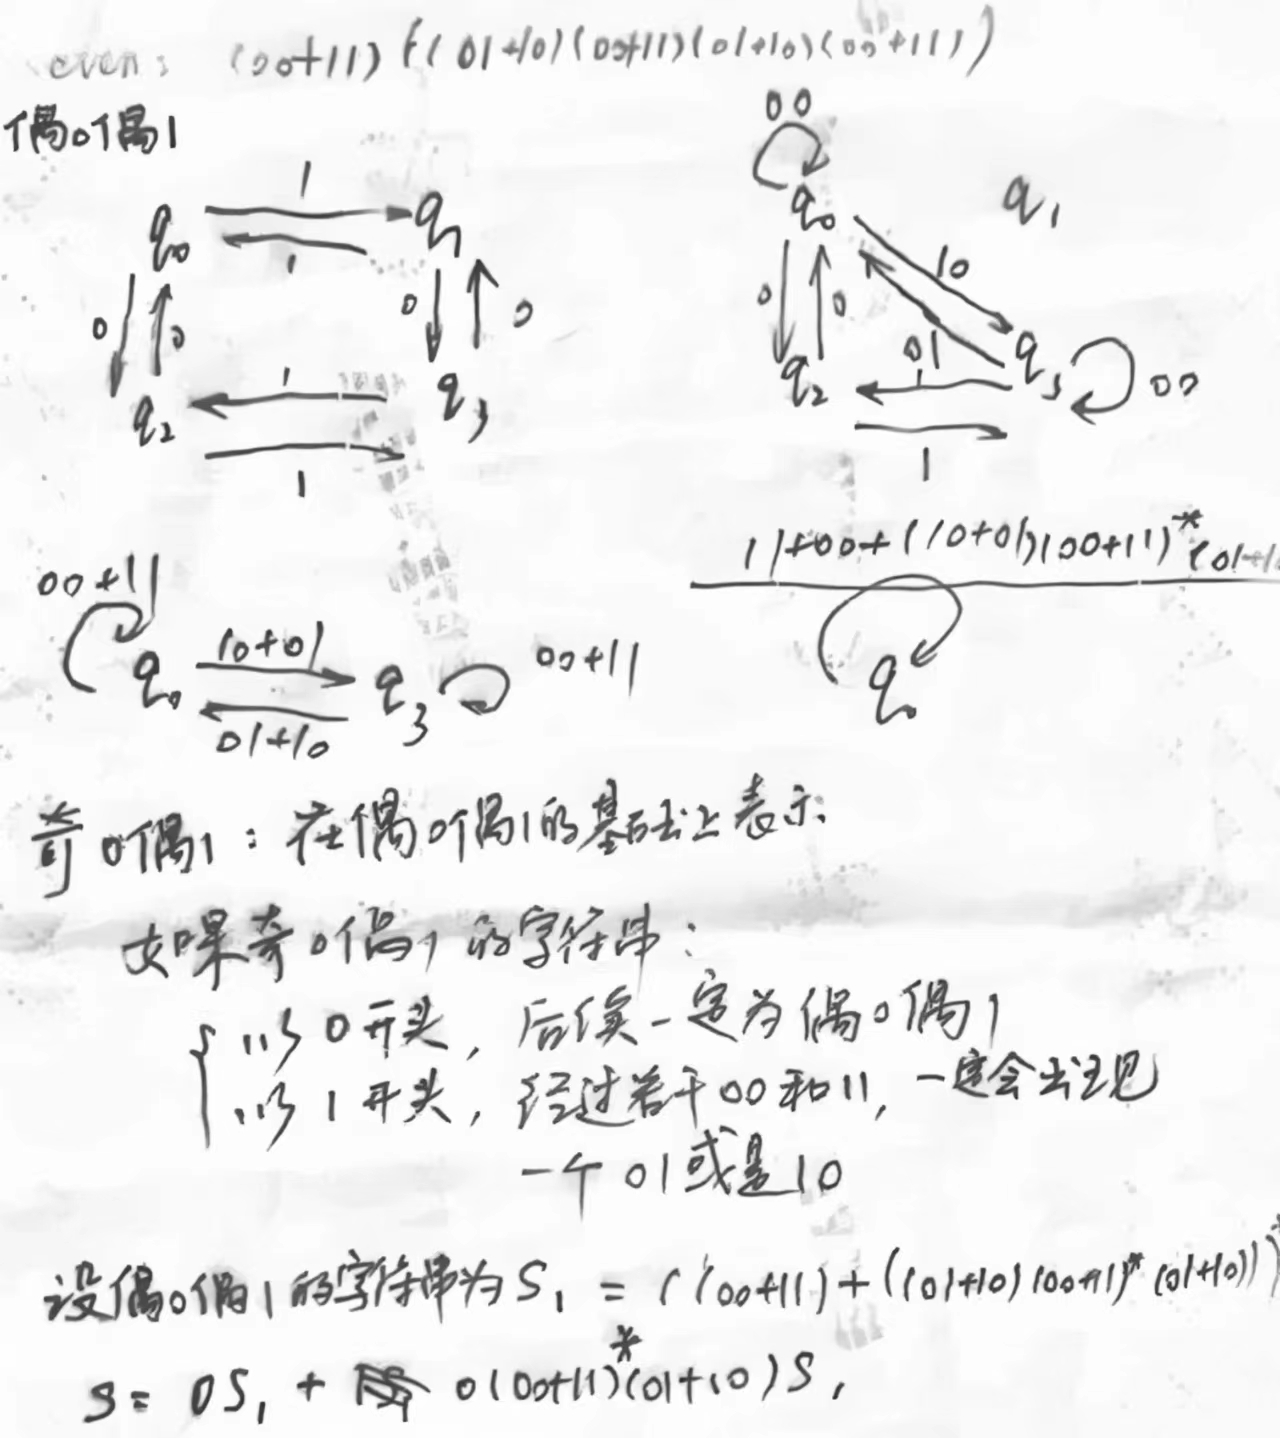 even: (00+11)((01+10)(00+11)(01+10)(00+11))
偶0偶1
00
q0 1 q1
1
0 0 0 0
q2 1 q3
1
q0 q1
10
0 0 01
q2 1 q3 00
1
00+11
q0 10+01 q3 00+11
01+10
11+00+(10+01)(00+11)*(01+1
q0
奇0偶1：在偶0偶1的基础上表示
如果奇0偶1的字符串：
以0开头，后续一定为偶0偶1
以1开头，经过若干00和11，一定会出现
一个01或是10
设偶0偶1的字符串为S1 = ((00+11)+((01+10)(00+11)*(01+10)))*
S = 0S1 + 0(00+11)*(01+10)S1